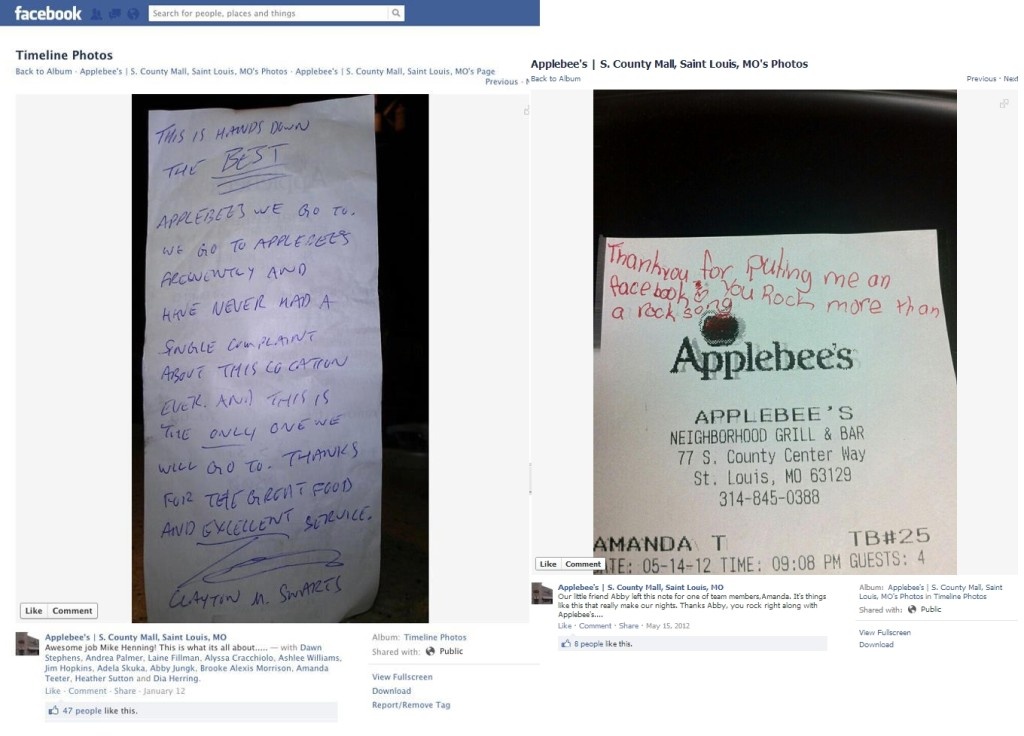 facebook
Search for people, places and things
Timeline Photos
Back to Album · Applebee's | S. County Mall, Saint Louis, MO's Photos · Applebee's | S. County Mall, Saint Louis, MO's Page
Previous ·
THIS IS HANDS DOWN
THE BEST
APPLEBEE'S WE GO TO.
WE GO TO APPLEBEES
FREQUENTLY AND
HAVE NEVER HAD A
SINGLE COMPLAINT
ABOUT THIS LOCATION
EVER. AND THIS IS
THE ONLY ONE WE
WILL GO TO. THANKS
FOR THE GREAT FOOD
AND EXCELLENT SERVICE.
CLAYTON M. SWARTS
Like Comment
Applebee's | S. County Mall, Saint Louis, MO
Awesome job Mike Henning! This is what its all about..... — with Dawn
Stephens, Andrea Palmer, Laine Fillman, Alyssa Cracchiolo, Ashlee Williams,
Jim Hopkins, Adela Skuka, Abby Jungk, Brooke Alexis Morrison, Amanda
Teeter, Heather Sutton and Dia Herring.
Like · Comment · Share · January 12
47 people like this.
Album: Timeline Photos
Shared with: Public
View Fullscreen
Download
Report/Remove Tag
Applebee's | S. County Mall, Saint Louis, MO's Photos
Back to Album
Previous · Next
Thankyou for puting me on
facebook You Rock more than
a rock song
Applebee's
APPLEBEE'S
NEIGHBORHOOD GRILL & BAR
77 S. County Center Way
St. Louis, MO 63129
314-845-0388
AMANDA T TB#25
ATE: 05-14-12 TIME: 09:08 PM GUESTS: 4
Like Comment
Applebee's | S. County Mall, Saint Louis, MO
Our little friend Abby left this note for one of team members,Amanda. It's things
like this that really make our nights. Thanks Abby, you rock right along with
Applebee's....
Like · Comment · Share · May 15, 2012
8 people like this.
Album: Applebee's | S. County Mall, Saint
Louis, MO's Photos in Timeline Photos
Shared with: Public
View Fullscreen
Download